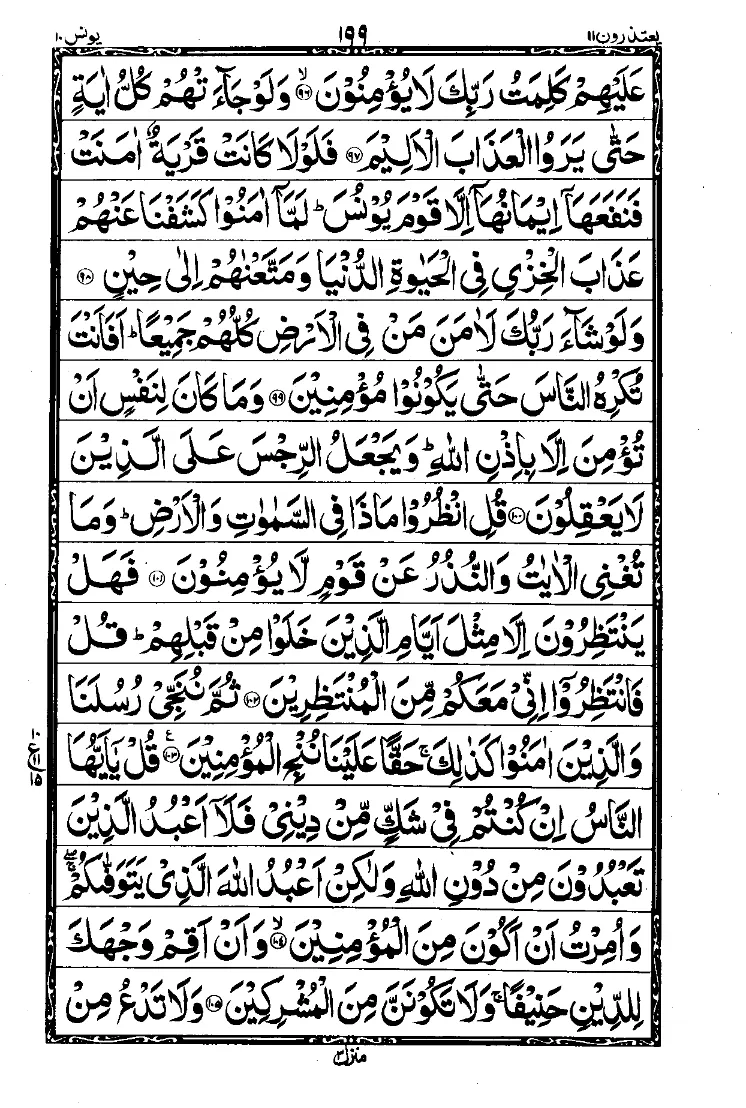 یعتذرون ۱۱ ۱۹۹ یونس ۱۰
عَلَيْهِمْ كَلِمَتُ رَبِّكَ لَا يُؤْمِنُوْنَ ۙ۹۶ وَلَوْ جَآءَتْهُمْ كُلُّ اٰيَةٍ
حَتّٰى يَرَوُا الْعَذَابَ الْاَلِيْمَ ۹۷ فَلَوْلَا كَانَتْ قَرْيَةٌ اٰمَنَتْ
فَنَفَعَهَاۤ اِيْمَانُهَاۤ اِلَّا قَوْمَ يُوْنُسَ ؕ لَمَّاۤ اٰمَنُوْا كَشَفْنَا عَنْهُمْ
عَذَابَ الْخِزْيِ فِى الْحَيٰوةِ الدُّنْيَا وَمَتَّعْنٰهُمْ اِلٰى حِيْنٍ ۹۸
وَلَوْ شَآءَ رَبُّكَ لَاٰمَنَ مَنْ فِى الْاَرْضِ كُلُّهُمْ جَمِيْعًا ؕ اَفَاَنْتَ
تُكْرِهُ النَّاسَ حَتّٰى يَكُوْنُوْا مُؤْمِنِيْنَ ۹۹ وَمَا كَانَ لِنَفْسٍ اَنْ
تُؤْمِنَ اِلَّا بِاِذْنِ اللّٰهِ ؕ وَيَجْعَلُ الرِّجْسَ عَلَى الَّذِيْنَ
لَا يَعْقِلُوْنَ ۱۰۰ قُلِ انْظُرُوْا مَاذَا فِى السَّمٰوٰتِ وَالْاَرْضِ ؕ وَمَا
تُغْنِى الْاٰيٰتُ وَالنُّذُرُ عَنْ قَوْمٍ لَّا يُؤْمِنُوْنَ ۱۰۱ فَهَلْ
يَنْتَظِرُوْنَ اِلَّا مِثْلَ اَيَّامِ الَّذِيْنَ خَلَوْا مِنْ قَبْلِهِمْ ؕ قُلْ
فَانْتَظِرُوْۤا اِنِّىْ مَعَكُمْ مِّنَ الْمُنْتَظِرِيْنَ ۱۰۲ ثُمَّ نُنَجِّىْ رُسُلَنَا
وَالَّذِيْنَ اٰمَنُوْا كَذٰلِكَ ۚ حَقًّا عَلَيْنَا نُنْجِ الْمُؤْمِنِيْنَ ۱۰۳ ع قُلْ يٰۤاَيُّهَا
۱۰ ع ۱۱ ۱۵
النَّاسُ اِنْ كُنْتُمْ فِىْ شَكٍّ مِّنْ دِيْنِىْ فَلَاۤ اَعْبُدُ الَّذِيْنَ
تَعْبُدُوْنَ مِنْ دُوْنِ اللّٰهِ وَلٰكِنْ اَعْبُدُ اللّٰهَ الَّذِىْ يَتَوَفّٰىكُمْ ۚۖ
وَاُمِرْتُ اَنْ اَكُوْنَ مِنَ الْمُؤْمِنِيْنَ ۙ۱۰۴ وَاَنْ اَقِمْ وَجْهَكَ
لِلدِّيْنِ حَنِيْفًا ۚ وَلَا تَكُوْنَنَّ مِنَ الْمُشْرِكِيْنَ ۱۰۵ وَلَا تَدْعُ مِنْ
منزل ۳